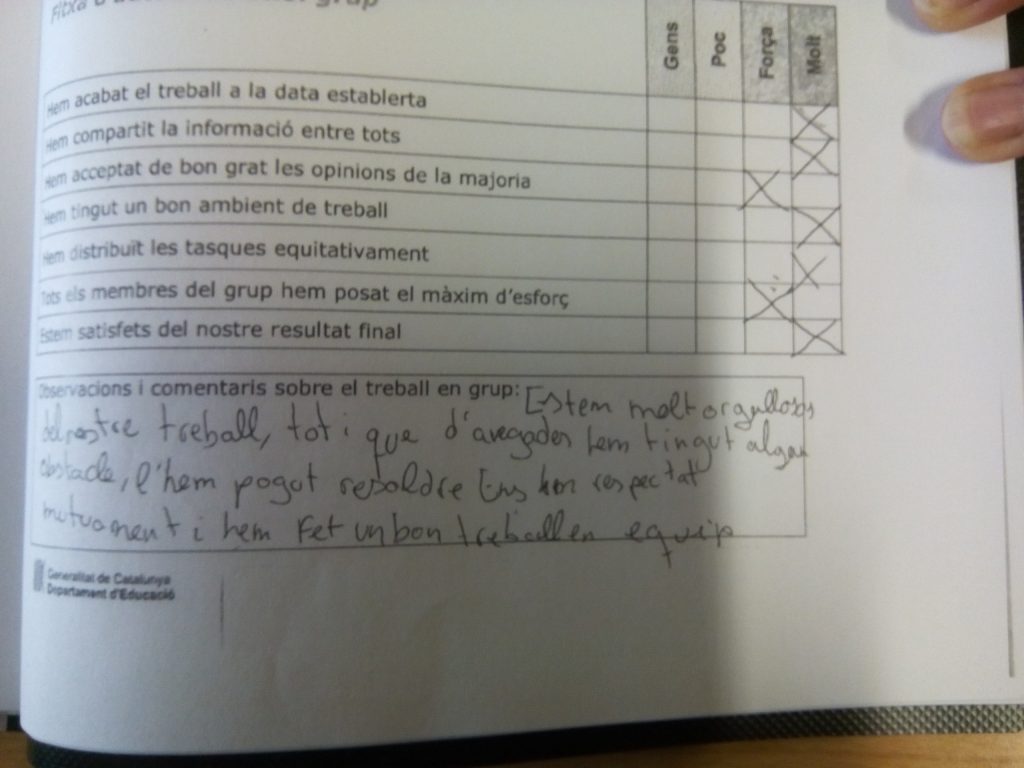 Fitxa grup
Gens Poc Força Molt
Hem acabat el treball a la data establerta
Hem compartit la informació entre tots
Hem acceptat de bon grat les opinions de la majoria
Hem tingut un bon ambient de treball
Hem distribuït les tasques equitativament
Tots els membres del grup hem posat el màxim d'esforç
Estem satisfets del nostre resultat final
Observacions i comentaris sobre el treball en grup: Estem molt orgullosos
del nostre treball, tot i que d'avegades hem tingut algun
obstacle, l'hem pogut resoldre Ens hem respectat
mutuament i hem Fet un bon treball en equip
Generalitat de Catalunya
Departament d'Educació